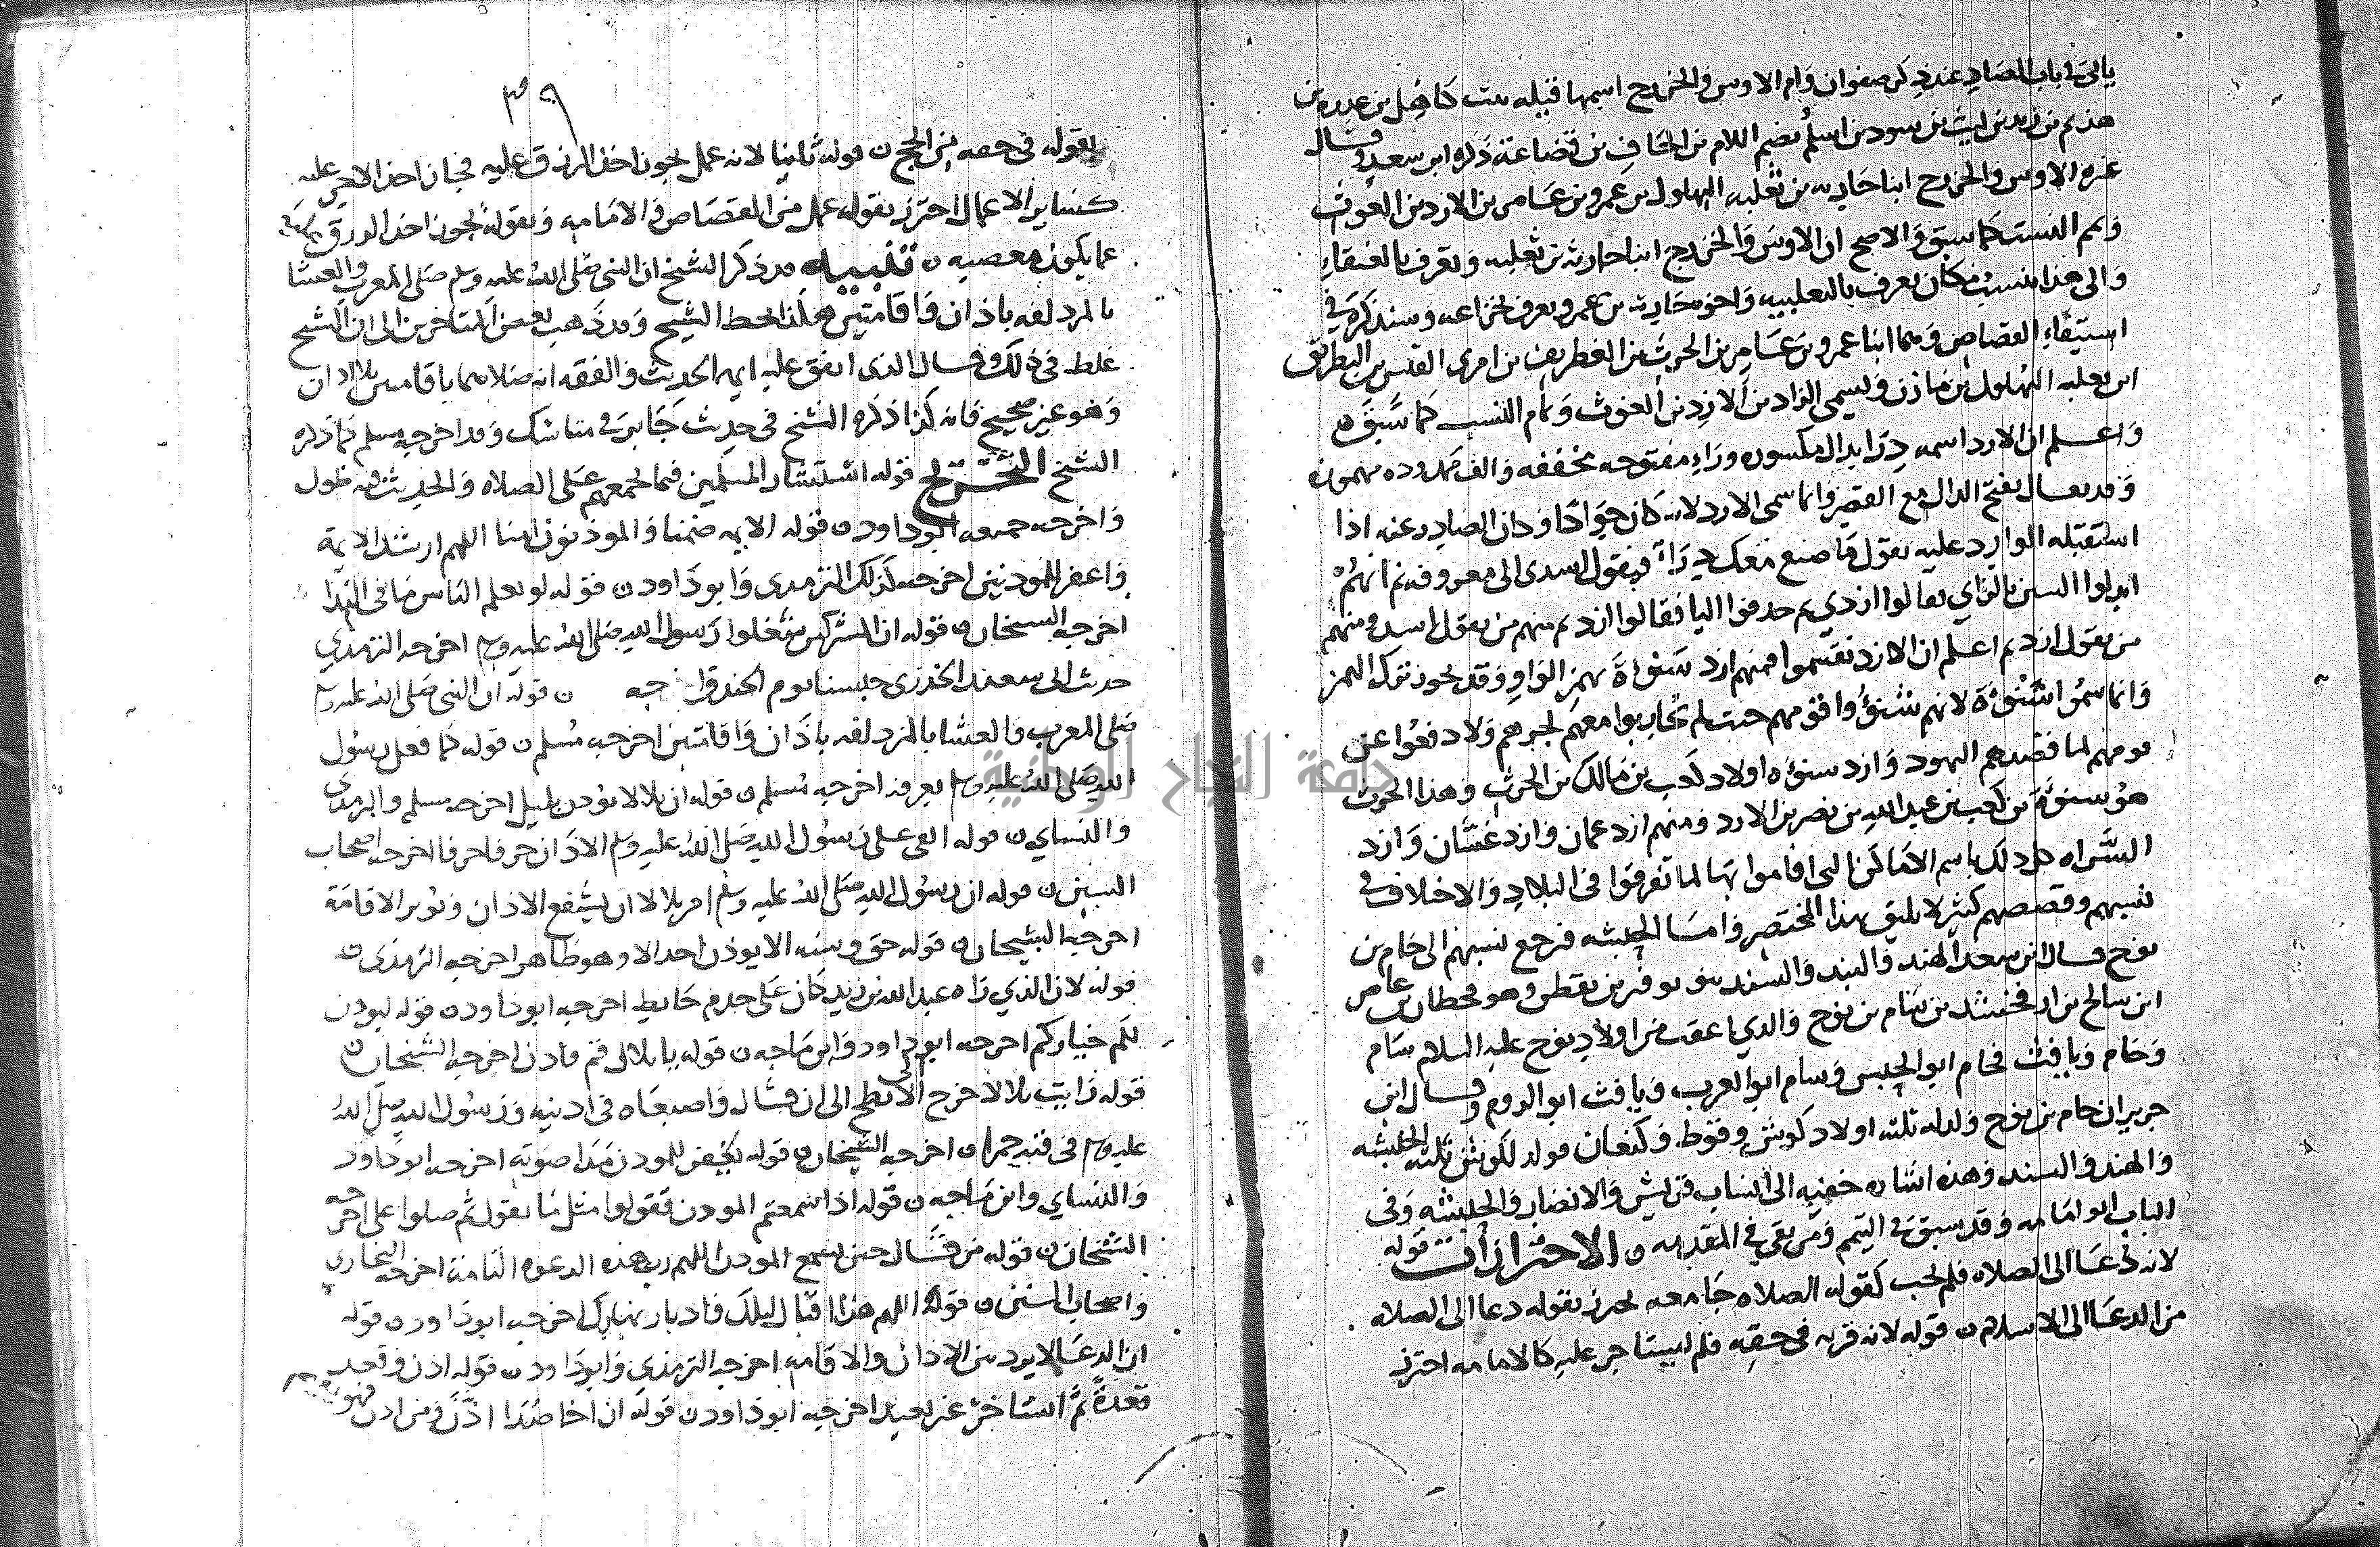 ياتى فى باب الصاد عند ذكر صفوان وام الاوس والخزرج اسمها قيله بنت كاهل بن عدره بن
هذيم بن زيد بن ليث بن سود بن اسلُم بضم اللام بن الحاف بن قضاعة ذكره ابن سعد وقال
غيره الاوس والخزرج ابنا حارثه بن ثعلبه البهلول بن عمرو بن عامر بن الازد بن الغوث
وتمم النسب كما سبق والاصح ان الاوس والخزرج ابنا حارثه بن ثعلبه ويعرف بالعنقاء
والى هذا ينسب مكان يعرف بالثعلبيه واخوه حارثه بن عمرو يعرف بخزاعه وسنذكره فى
استيفاء القصاص وهما ابنا عمرو بن عامر بن الحرث بن الغطريف بن امرى القيس بن البطريق
ابن ثعلبه البهلول بن مازن ويسمى الزاد بن الازد بن الغوث وتمام النسب كما سبق ه
واعلم ان الازد اسمه دِرَا بدال مكسوره وراء مفتوحه مخففه والف ممدوده مهموزه
وقد يقال بفتح الدال مع القصر وانما سمى الازد لانه كان جوادا وكان الصادر عنه اذا
استقبله الوارد عليه يقول ما صنع معك دِرَاء فيقول اسدى الى معروفه ثم انهم
ابدلوا السين بالزاي فقالوا ازدي ثم حذفوا اليا فقالوا ازد ثم منهم من يقول اسد ومنهم
من يقول ازد ثم اعلم ان الازد تقسموا فمنهم ازد شنوءة بهمز الواو وقد يجوز ترك الهمز
وانما سموا شنوءة لانهم شنؤا قومهم حيث لم يحاربوا معهم لجرهم ولا دفعوا عن
قومهم لما قصدهم اليهود وازد شنوءه اولاد كعب بن مالك بن الحرث وهذا الحرث
هو شنوءة بن كعب بن عبد الله بن نصر بن الازد ومنهم ازد عمان وازد غسّان وازد
السّراه كل ذلك باسم الاماكن التى اقاموا بها لما تفرقوا فى البلاد والاختلاف فى
نسبهم وقصصهم كثير لا يليق بهذا المختصر واما الحبشه فرجع نسبهم الى حام بن
نوح قال ابن سعد الهند والبند والسند بنو يوفر بن يقطن وهو قحطان بن عابر
ابن سالح بن ارفخشد بن سام بن نوح والذي اعقب من اولاد نوح عليه السلام سام
وحام ويافث فحام ابو الحبش وسام ابو العرب ويافث ابو الروم وقال ابن
جرير ان حام بن نوح ولد له ثلثه اولاد كوش وقوط وكنعان فولد لكوش ثلثه الحبشه
والهند والسند وهذه اشاره خفيه الى انساب قريش والانصار والحبشه وفى
الباب ابو امامه وقد سبق فى التيمم ومن بقي فى المقدمه ن الاحترازات قوله
لانه دعا الى الصلاه فلم يجب كقوله الصلاه جامعه يحترز بقوله دعا الى الصلاه
من الدعا الى الاسلام ن قوله لانه قربه فى حقه فلم يستاجر عليه كالامامه احترز
٣٩
بقوله فى حقه من الحج ن قوله ثانيا لانه عمل يجوز اخذ الرزق عليه فجاز اخذ الاجر عليه
كساير الاعمال احترز بقوله عمل من القصاص والامامه وبقوله يجوز اخذ الرزق
عما يكون معصيه ن تنبيه قد ذكر الشيخ ان النبى صلى الله عليه وسلم صلى المغرب والعشا
بالمزدلفه باذان واقامتين هكذا بخط الشيخ وقد ذهب بعض المتاخرين الى ان الشيخ
غلط فى ذلك وقال الذى اتفق عليه ايمه الحديث والفقه انه صلاهما باقامتين بلا اذان
وهو غير صحيح فانه كذا ذكره الشيخ فى حديث جابر فى مناسك وقد اخرجه مسلم كما ذكره
الشيخ التخريج قوله استشار المسلمين فيما يجمعهم على الصلاه والحديث فيه طول
واخرجه جميعه ابو داود ن قوله الايمه ضمنا والموذنون امنا اللهم ارشد الايمة
واغفر للموذنين اخرجه كذلك الترمذى وابو داود ن قوله لو يعلم الناس ما فى الندا
اخرجه الشيخان ن قوله ان المشركين شغلوا رسول الله صلى الله عليه وسلم اخرجه الترمذي
حديث ابى سعيد الخدرى حبسنا يوم الخندق اخرجه ن قوله ان النبى صلى الله عليه وسلم
صلى المغرب والعشا بالمزدلفه باذان واقامتين اخرجه مسلم ن قوله كما فعل رسول
الله صلى الله عليه وسلم بعرفه اخرجه مسلم ن قوله ان بلالا يؤذن بليل اخرجه مسلم والترمذى
والنساي ن قوله القى على رسول الله صلى الله عليه وسلم الاذان حرفا حرفا اخرجه اصحاب
السنن ن قوله ان رسول الله صلى الله عليه وسلم امر بلالا ان يشفع الاذان ويوتر الاقامة
اخرجه الشيخان ن قوله حق وسنه الا يوذن احد الا وهو طاهر اخرجه الترمذى ن
قوله لان الذي راه عبد الله بن زيد كان على جدم حايط اخرجه ابو داود ن قوله ليوذن
لكم خياركم اخرجه ابو داود وابن ماجه ن قوله يا بلال قم فاذن اخرجه الشيخان ن
قوله رايت بلالا خرج الى الابطح الى ان قال واصبعاه فى اذنيه ورسول الله صلى الله
عليه وسلم فى قبه حمرا ن اخرجه الشيخان ن قوله يغفر للموذن مدا صوته اخرجه ابو داود
والنساي وابن ماجه ن قوله اذا سمعتم الموذن فقولوا مثل ما يقول ثم صلوا على اخرجه
الشيخان ن قوله من قال حين يسمع الموذن اللهم رب هذه الدعوه التامة اخرجه البخارى
واصحاب السنن ن قوله اللهم هذا اقبال ليلك وادبار نهارك اخرجه ابو داود ن قوله
ان الدعا لا يرد بين الاذان والاقامه اخرجه الترمذي وابو داود ن قوله اذن وقعد
قعدةً ثم استاخر غير بعيد اخرجه ابو داود ن قوله ان اخا صُدا اذّن ومن اذن فهو يقيم
جامعة النجاح الوطنية